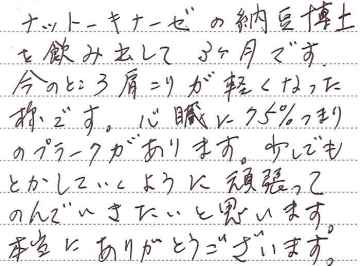 ナットーキナーゼの納豆博士
を飲み出して 3ヶ月です。
今のところ肩こりが軽くなった
様です。心臓に75%つまり
のプラークがあります。少しでも
とかしていくように頑張って
のんでいきたいと思います。
本当にありがとうございます。